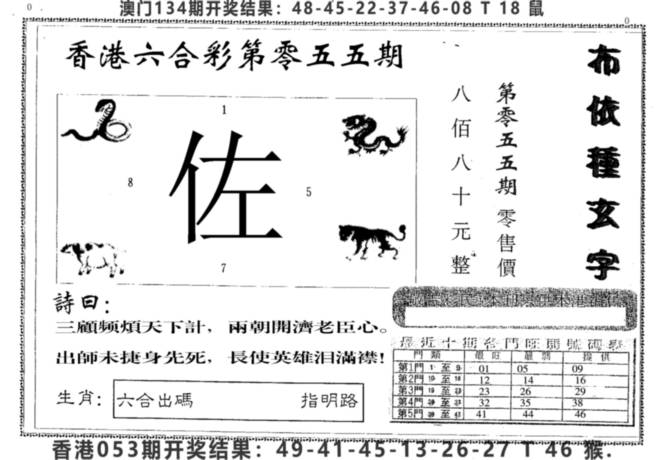 澳门134期开奖结果：48-45-22-37-46-08 T 18 鼠
0
0
香港六合彩第零五五期
1
8
佐
5
7
八佰八十元整
第零五五期 零售價
布依種玄字
詩曰：
三顧频煩天下計，兩朝開濟老臣心。
出師未捷身先死，長使英雄泪滿襟!
生肖： 六合出碼 指明路
最近十期各門旺開號碼
門類 最旺 最弱 提供
第1門 1 至 9 01 05 09
第2門 10 至 18 12 14 16
第3門 至 23 26 29
第4門 至 32 35 38
第5門 至 41 44 46
香港053期开奖结果：49-41-45-13-26-27 T 46 猴.